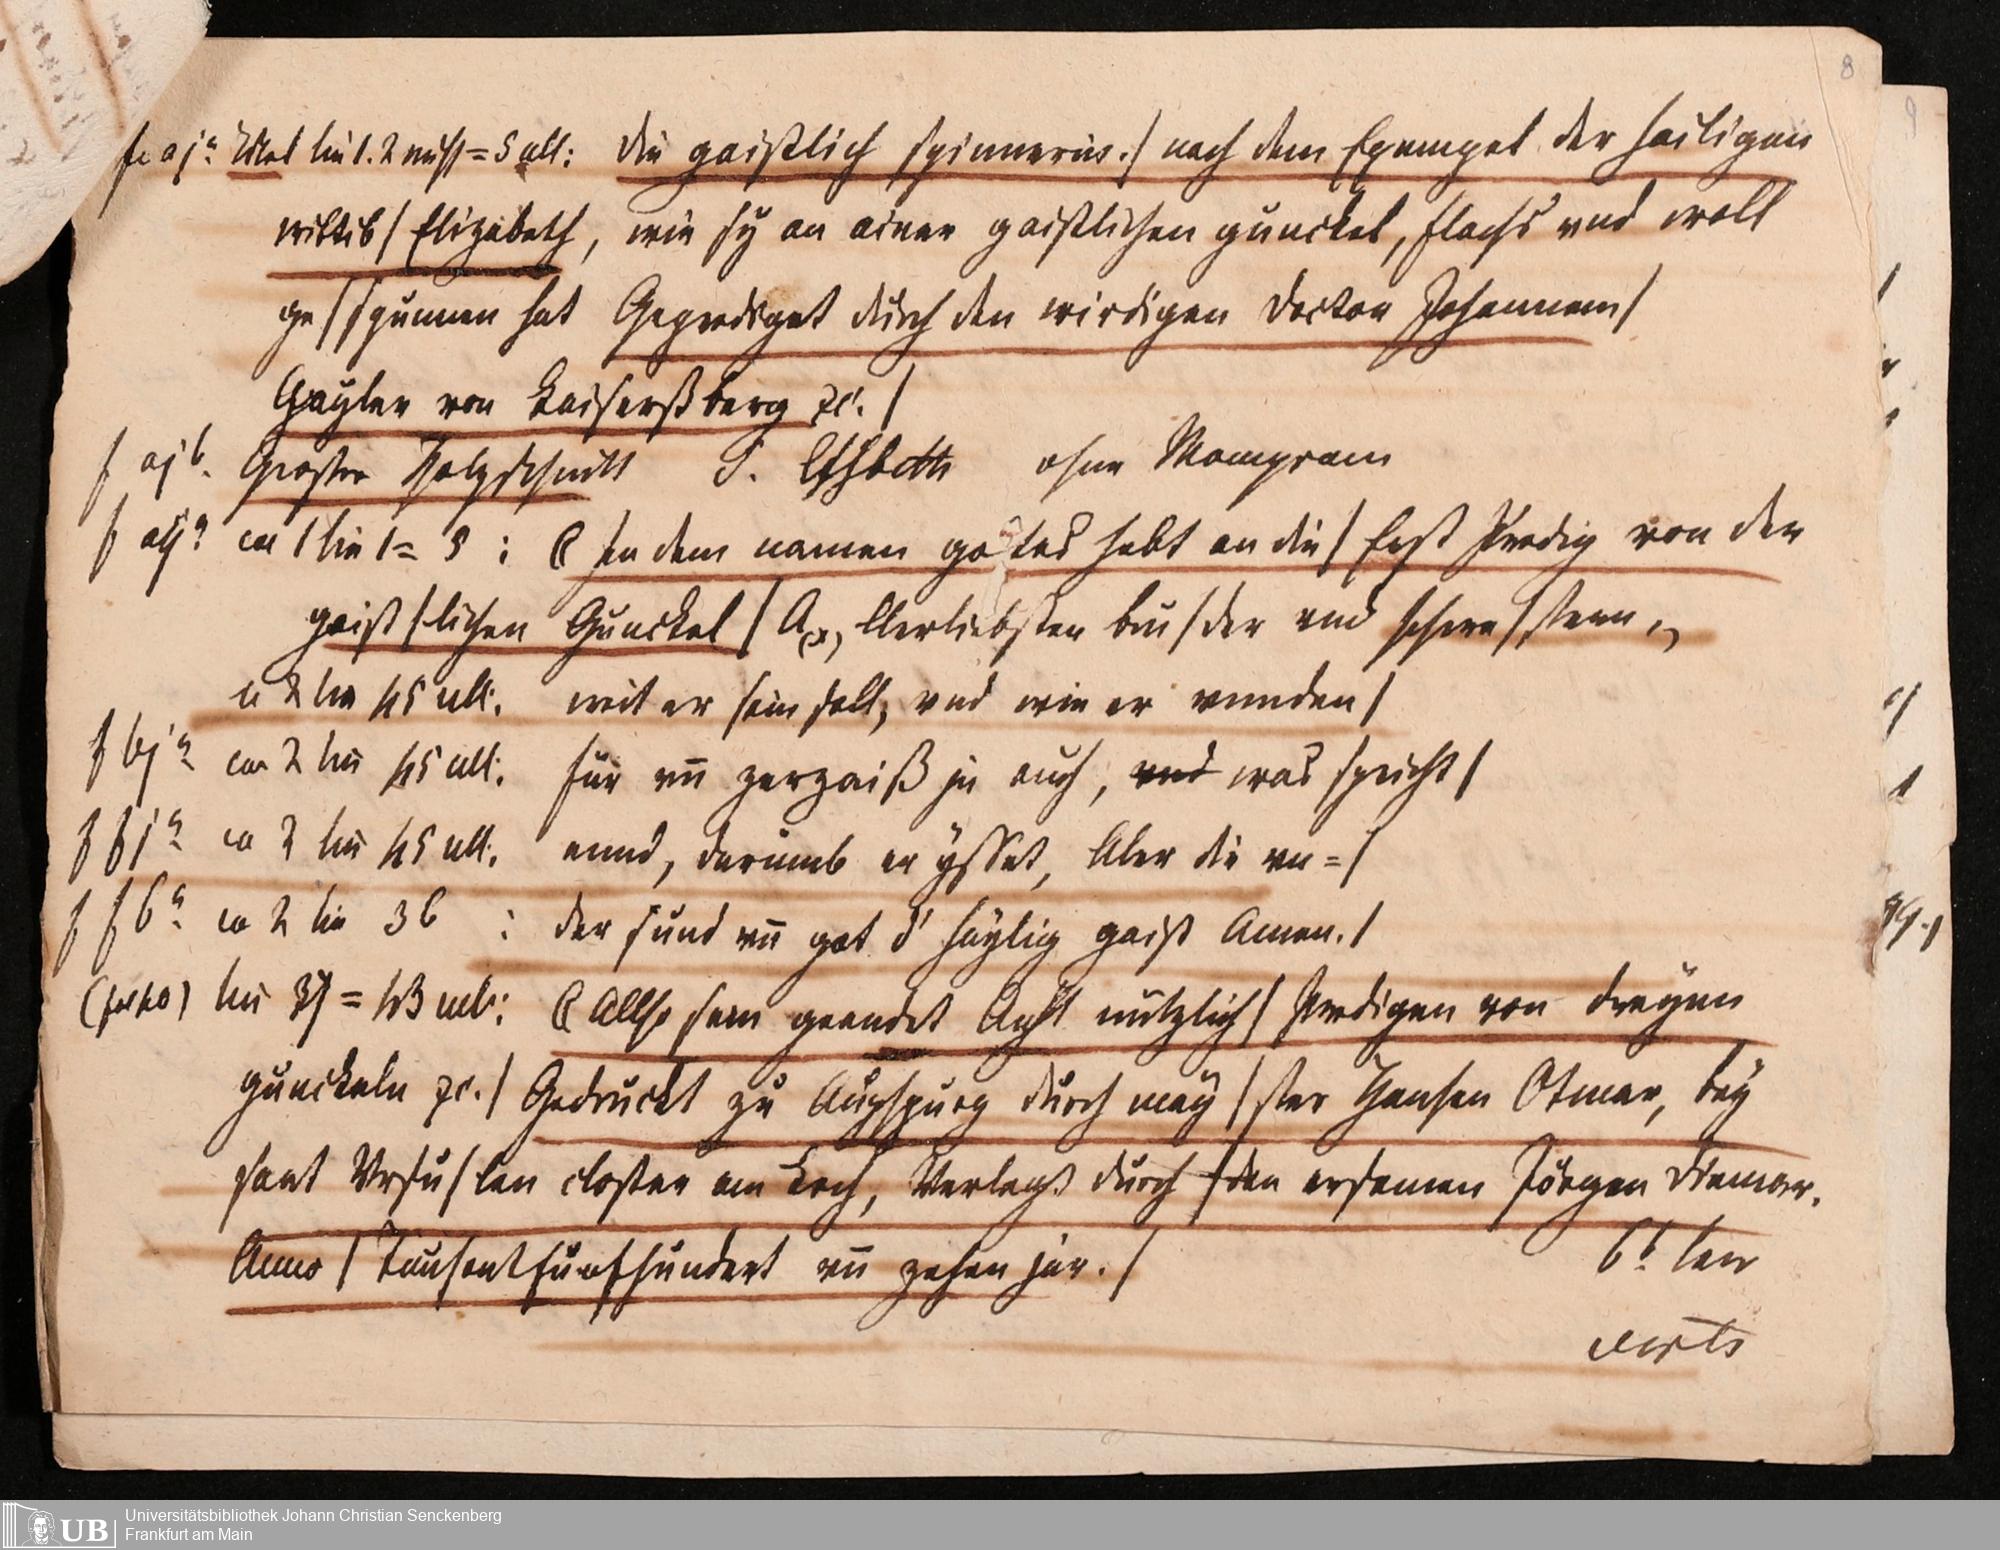 8
f aj a. Titel lin 1. 2 miss = 5 all: Die gaistlich spinnerin./ nach dem Exempel der hailigen
wittib/ Elizabeth, wie sy an ainer gaistlichen gunckel, flachs und woll
ge/spunnen hat Geprediget durch den wirdigen Doctor Johannem/
Gayler von Kaisersßberg ꝛc. /
f aj b. Grosser Holzschnitt S. Elsbeth ohne Mompram
f aij a. col 1 lin 1 = 5 : In dem namen gotes hebt an die/ Erst Predig von der
gaist/lichen Gunckel/ A(3) llerliebsten brü/der und schwe/stern,
c 2 lin 45 ult. weit er sein soll, und wie er wunden/
f bj a. col 2 lin 45 ult. für vn̄ zerzaiß in auch, und was spricht/
f fj a. co 2 lin 45 ult. ennd, darumb er ysset, Aber die un=/
f f6 a. co 2 lin 36 : der sund vn̄ got d' häylig gaist Amen./
lin 37 = 43 ult: Allso seien geendet Acht nützlich/ Predigen von dreyen
gunckeln ꝛc./ Gedruckt zu Augspurg durch may/ster Hansen Otmar, bey
sant Ursu/len closter am Lech, Verlegt durch /den ersamen Jörgen Diemar.
Anno / Tausentfünfhundert vn̄ zehen jar./
6 b. leer
verte
9
UB
Universitätsbibliothek Johann Christian Senckenberg
Frankfurt am Main